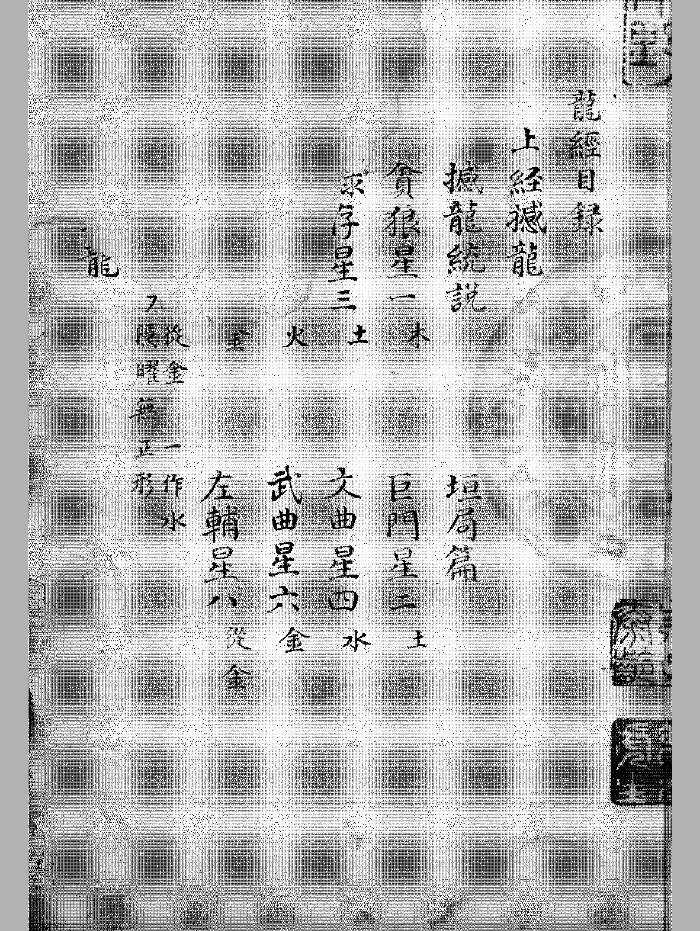 龍經目録
上経撼龍
撼龍統説
垣局篇
貪狼星一 木
巨門星二 土
求存星三 土
文曲星四 水
火
武曲星六 金
金
左輔星八 從金
從金 一作水
陽曜無正形
龍